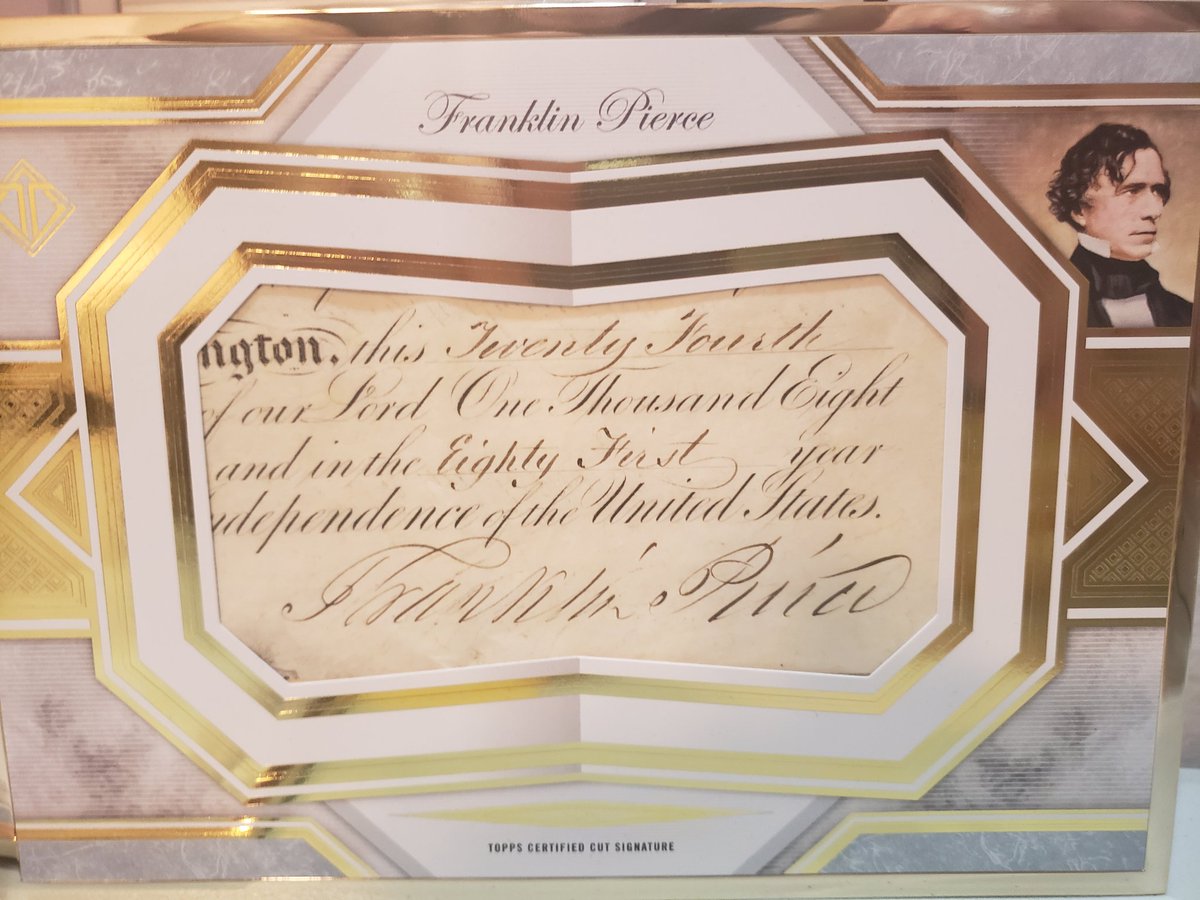 Franklin Pierce
ngton, this Twenty Fourth
of our Lord One Thousand Eight
and in the Eighty First year
dependence of the United States.
Franklin Pierce
TOPPS CERTIFIED CUT SIGNATURE